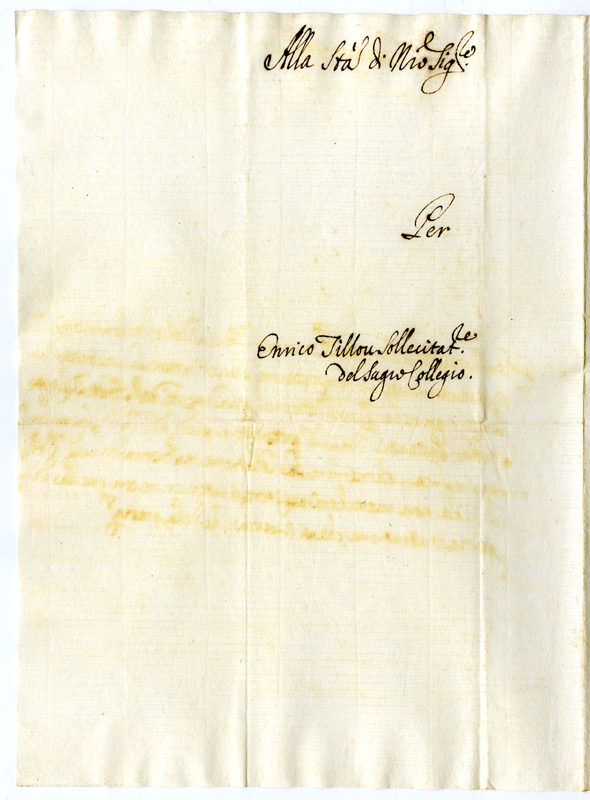 Alla Sta' di Nro Sigre.
Per
Enrico Tillou Sollecitatre.
del Sagro Collegio.